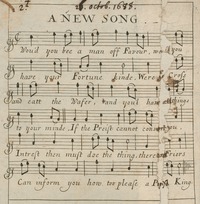 2d 18. octob. 1688.
A NEW SONG
Wou'd you bee a man off Favour, wou'd you
have your Fortune kinde, Weare Cross
and eatt the Wafer, and you'l have all things
to your minde, If the Preist cannot
Intrest then must doe the thing, there Friers
Can inform you how, to please a King